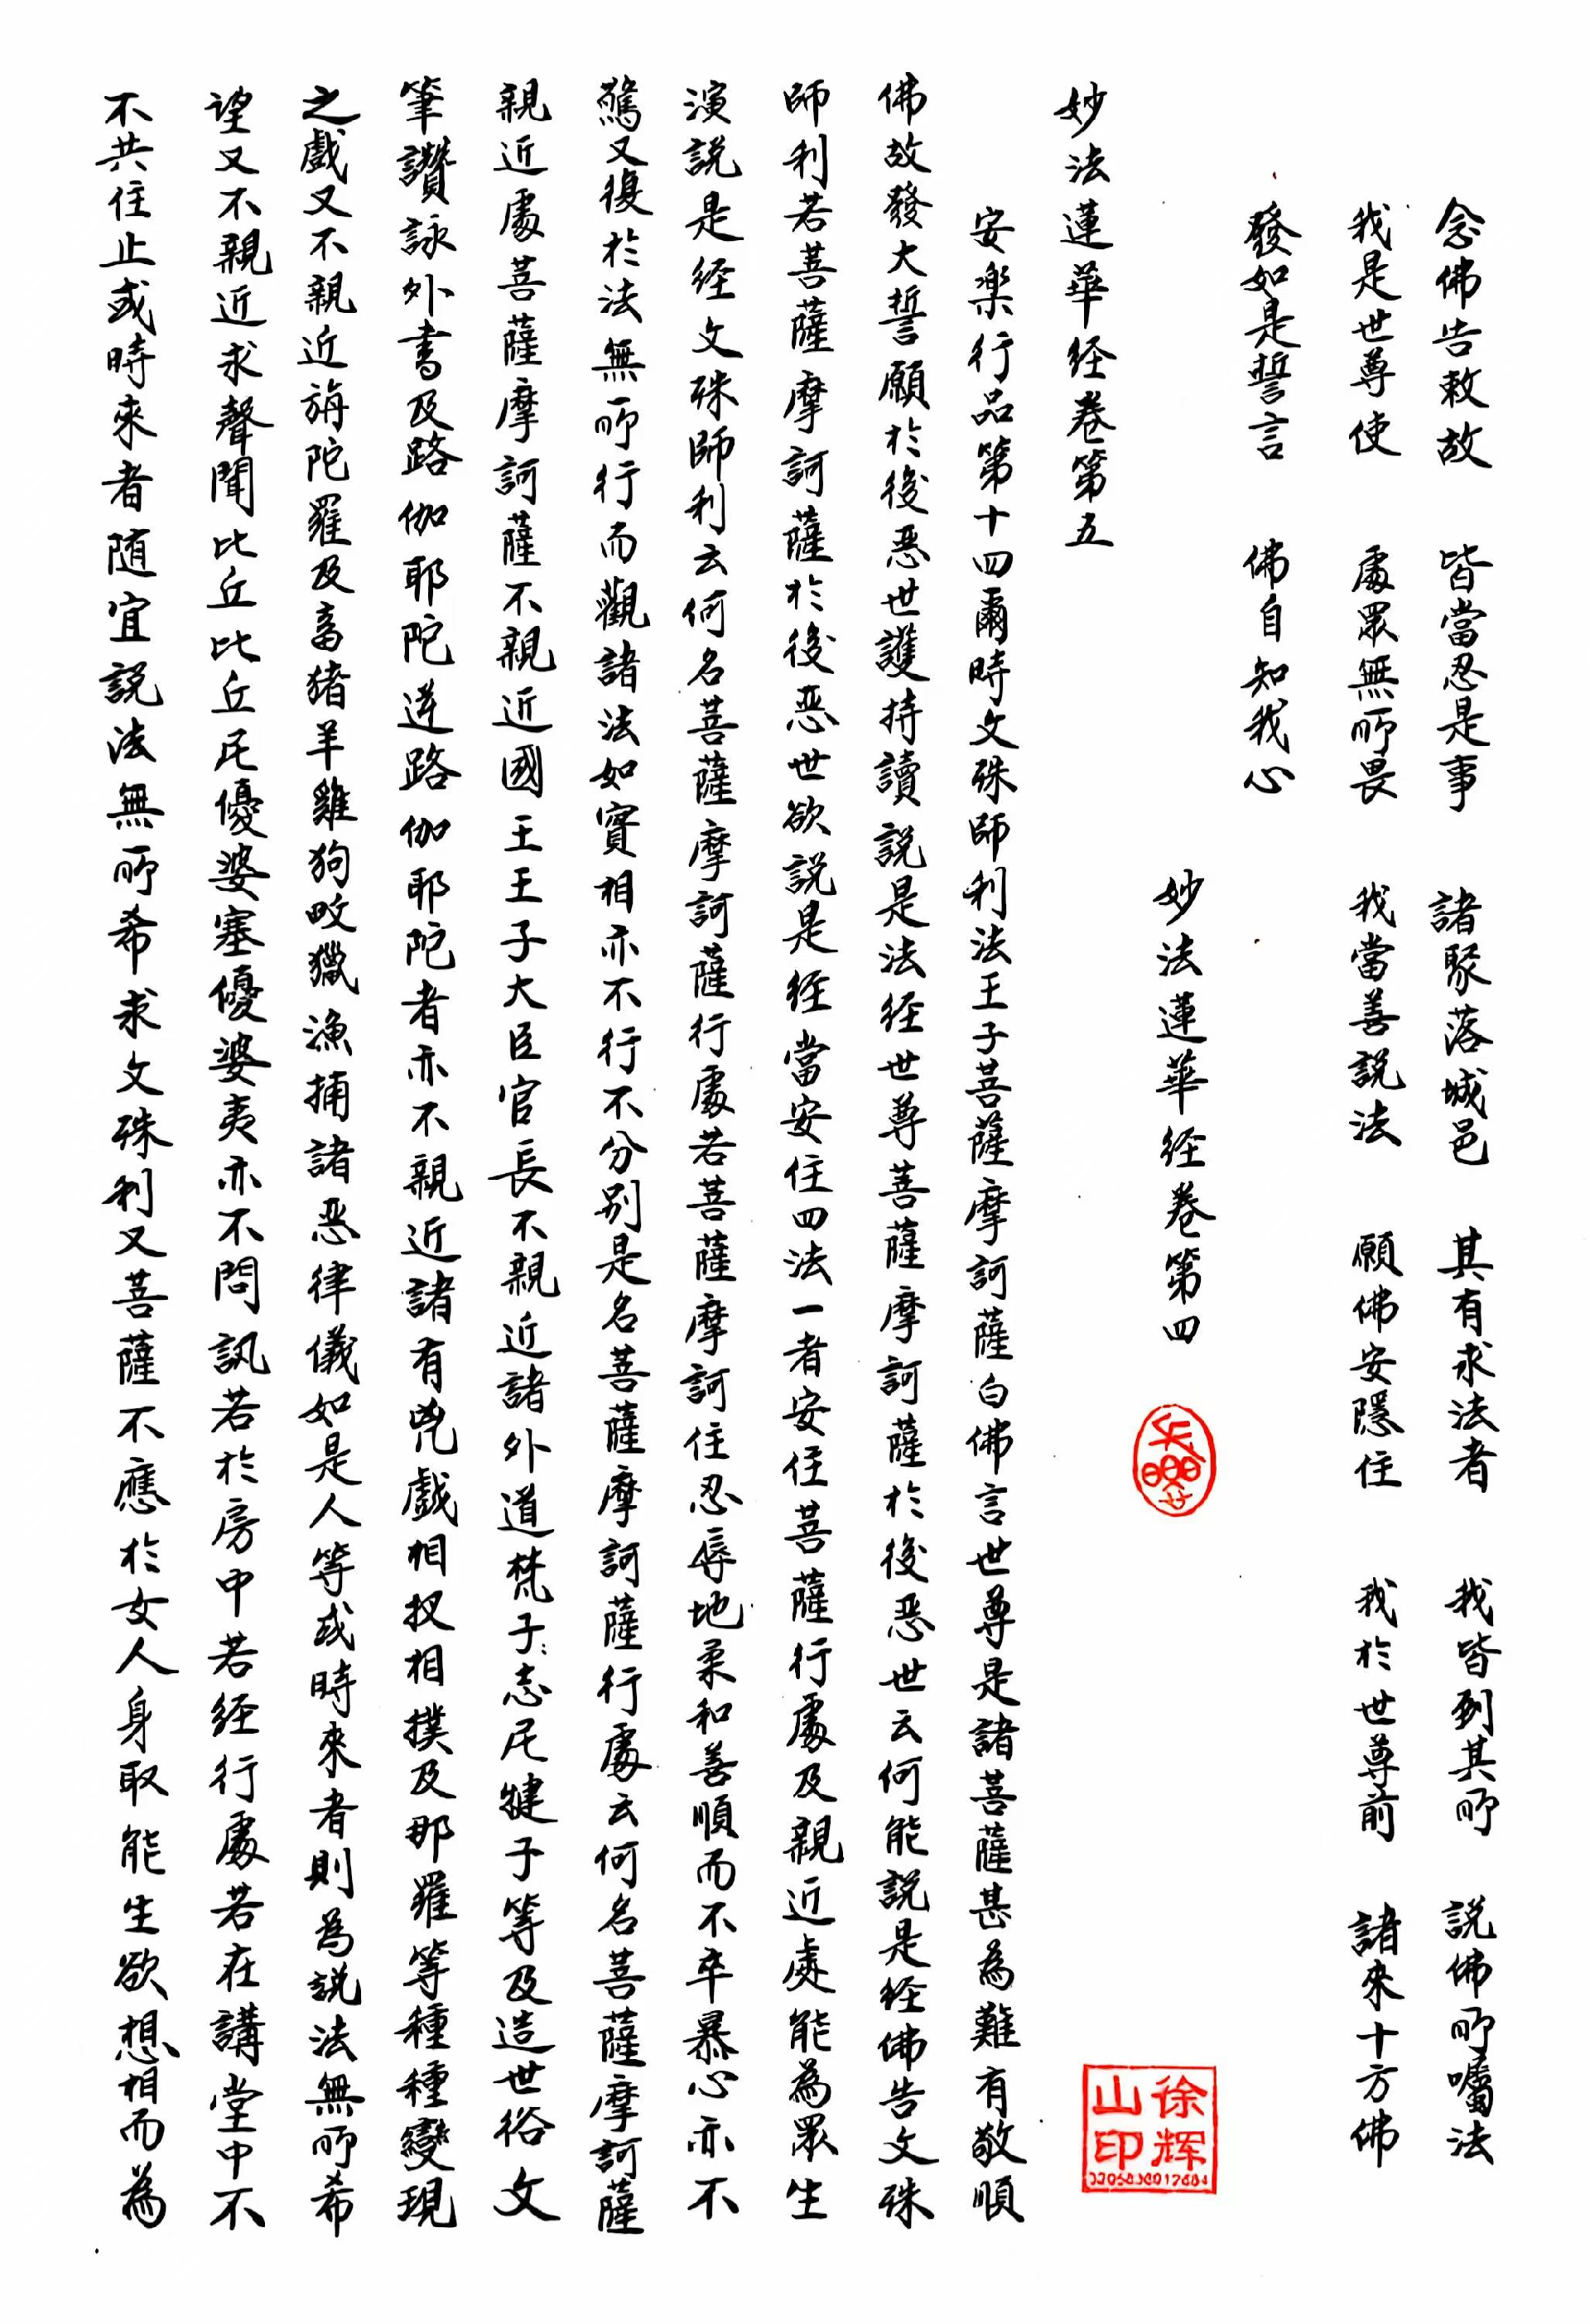 念佛告敕故 皆當忍是事 諸聚落城邑 其有求法者 我皆到其所 說佛所囑法
我是世尊使 處眾無所畏 我當善說法 願佛安隱住 我於世尊前 諸來十方佛
發如是誓言 佛自知我心
妙法蓮華経卷第四
徐辉
山印
妙法蓮華経卷第五
安楽行品第十四爾時文殊師利法王子菩薩摩訶薩白佛言世尊是諸菩薩甚為難有敬順
佛故發大誓願於後恶世護持讀說是法経世尊菩薩摩訶薩於後恶世云何能說是経佛告文殊
師利若菩薩摩訶薩於後恶世欲說是経當安住四法一者安住菩薩行處及親近處能為眾生
演說是経文殊師利云何名菩薩摩訶薩行處若菩薩摩訶住忍辱地柔和善順而不卒暴心亦不
驚又復於法無所行而觀諸法如實相亦不行不分别是名菩薩摩訶薩行處云何名菩薩摩訶薩
親近處菩薩摩訶薩不親近國王王子大臣官長不親近諸外道梵子志尼犍子等及造世俗文
筆讚詠外書及路伽耶陀逆路伽耶陀者亦不親近諸有兇戲相扠相撲及那羅等種種變現
之戲又不親近旃陀羅及畜猪羊雞狗畋獵漁捕諸恶律儀如是人等或時來者則為說法無所希
望又不親近求聲聞比丘比丘尼優婆塞優婆夷亦不問訊若於房中若経行處若在講堂中不
不共住止或時來者随宜說法無所希求文殊利又菩薩不應於女人身取能生欲想相而為